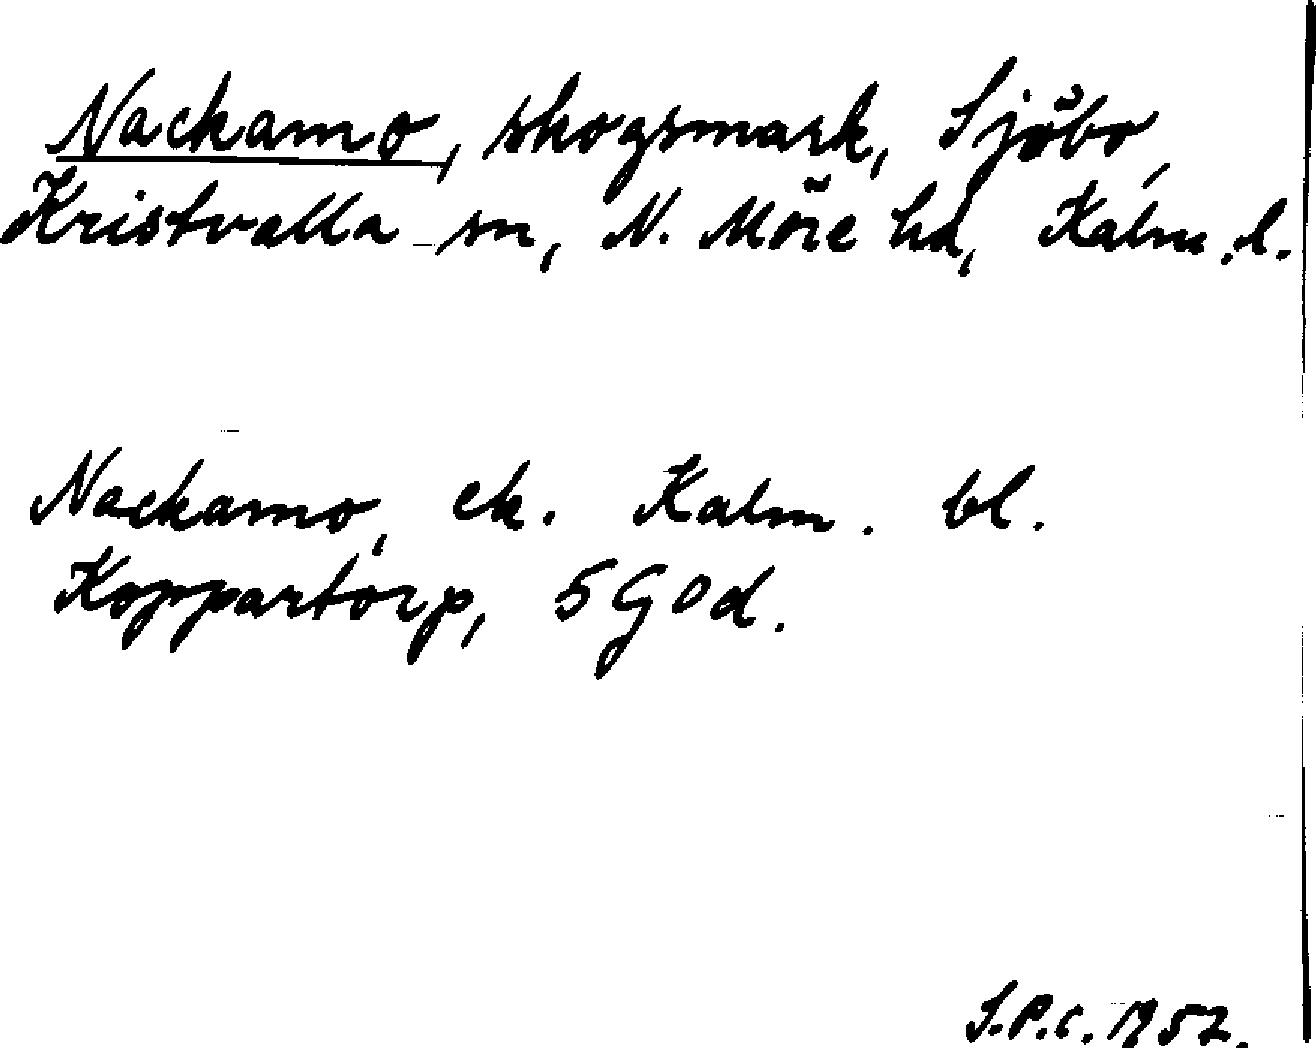 Nackamo, skogsmark, Sjöbo,
Kristvalla sn, N. Möre hd, Kalm. l.
Nackamo, ek. Kalm. bl.
Koppartorp, 5 G 0 d.
S.P.C. 1957.